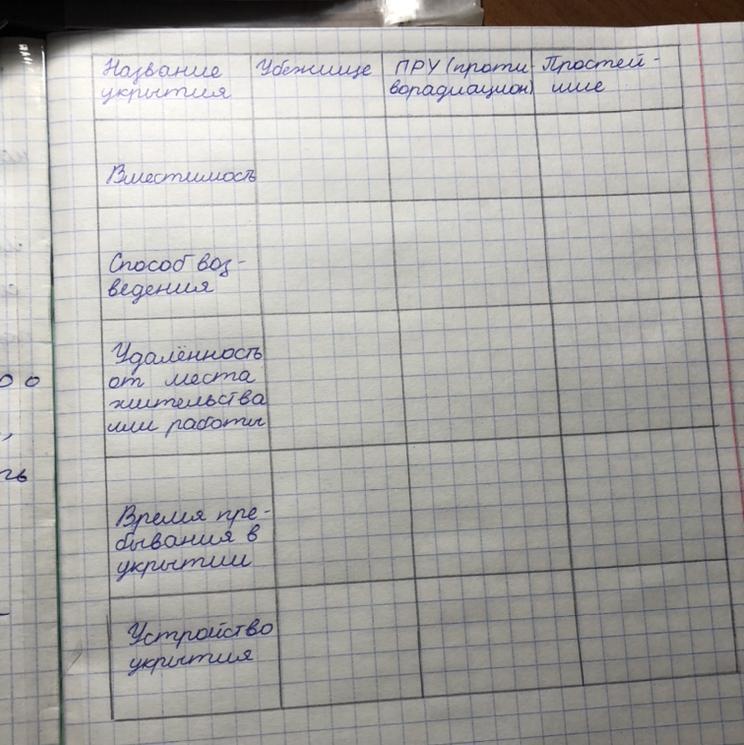 Название Убежище ПРУ (проти Простей-
укрытия ворадиацион) шие
Вместимость
Способ воз-
ведения
Удалённость
от места
жительства
или работы
Время пре-
бывания в
укрытии
Устройство
укрытия